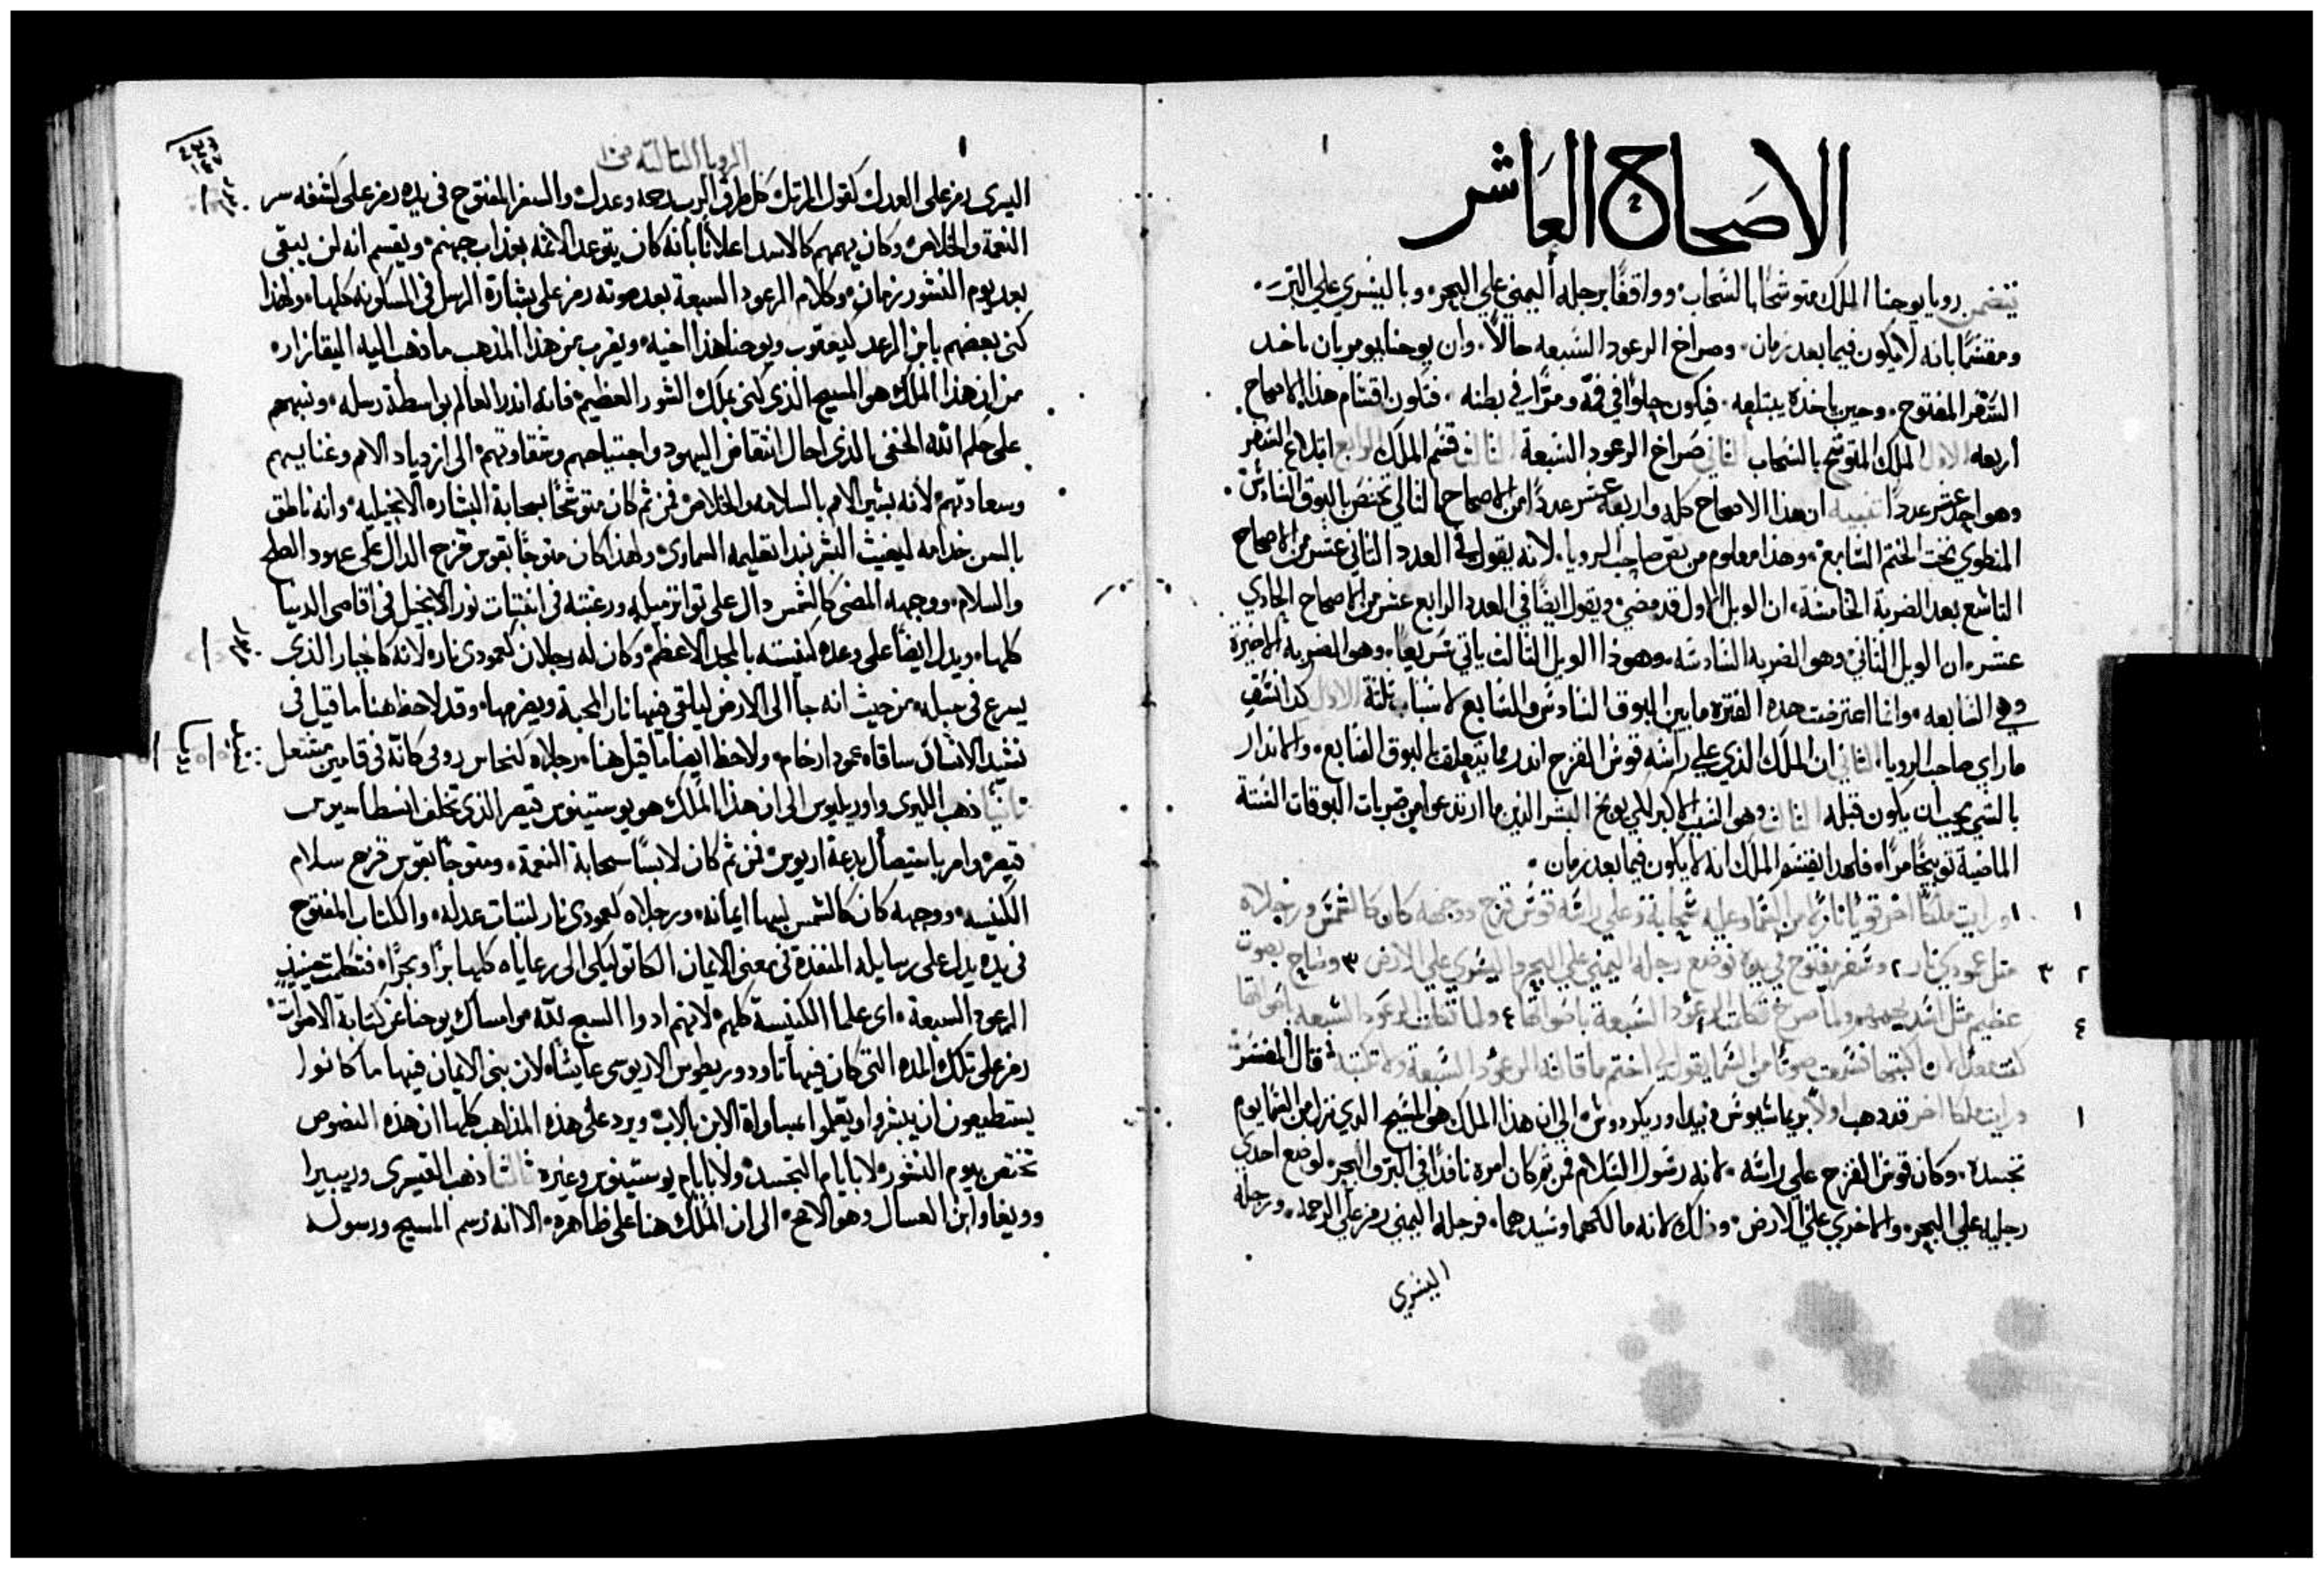 الاصحاح العاشر
يتضمن رويا يوحنا الملك متوشحًا بالسحاب، وواقفًا برجله اليمني علي البحر، وباليسري علي البر،
ومقسمًا بانه لا يكون فيما بعد زمان، وصراخ الرعود السبعه حالاً، وان يوحنا يومر بان ياخد
السفر المفتوح، وحين ياخده يبتلعه، فيكون حلوًا في فمه ومرًا في بطنه، فتكون اقسام هذا الاصحاح
أربعه الاول الملك المتوشح بالسحاب الثاني صراخ الرعود السبعة الثالث قسم الملك الرابع ابتلاع السفر
وهو احد عشر عددًا تنبيه ان هذا الاصحاح كله واربعة عشر عددًا من الاصحاح التالي تختص بالبوق السادس
المنطوي تحت الختم السابع، وهذا معلوم من نص صاحب الرويا، لانه يقول في العدد الثاني عشر من الاصحاح
التاسع بعد الضربة الخامسة، ان الويل الاول قد مضي، ويقول ايضًا في العدد الرابع عشر من الاصحاح الحادي
عشر، ان الويل الثاني وهو الضربه السادسه، وهوذا الويل الثالث ياتي سريعًا، وهو الضربه الاخيرة
وهي السابعه، وانما اعترضت هده الفتره ما بين البوق السادس والسابع لاسباب ثلثة الاول
ما راي صاحب الرويا، الثاني ان الملك الذي علي راسه قوس القزح اندر بما يتعلق بالبوق السابع، والاندار
بالشي يجب ان يكون قبله الثالث وهو السبب الاكبر لكي يوبخ البشر الذين ما ارتدعوا من ضربات البوقات الستة
الماضية توبيخًا مرًا، فلهدا يقسم الملك انه لا يكون فيما بعد زمان،
١ ١ ورايت ملكًا اخر قويًا نازلًا من السما وعليه سحابة وعلي راسه قوس قزح ووجهه كان كالشمس ورجلاه
٢ ٣ مثل عمودي نار ٢ وسفر مفتوح في يده فوضع رجله اليمني علي البحر واليسري علي الارض ٣ وصاح بصوت
٤ عظيم مثل اسد ولما صرخ تكلمت الرعود السبعة باصواتها ٤ ولما تكلمت الرعود السبعه باصواتها
كنت اكتبها فسمعت صوتًا من السما يقول لي اختم ما قالته الرعود السبعة ولا تكتبه قال المفسر
١ ورايت ملكا اخر قد دهب اولاً وبيدا الي ان هذا الملك هو المسيح الدي نزل من السما يوم
تجسده، وكان قوس القزح علي راسه، لانه رسول السلام فمن ثم كان امره نافدًا في البر والبحر، لوضع احدي
رجليه علي البحر، والاخري علي الارض، وذلك لانه مالكهما وسيدهما، فرجله اليمني رمز علي الرحمه، ورجله
اليسري
الرويا الثالثة
اليسرى رمز على العدل كقول المرتل كل طرق الرب رحمه وعدل والسفر المفتوح في يده رمز على كشفه سر
النعمة والخلاص، وكان يهمهم كالاسد اعلانًا بأنه كان يتوعد الاثمه بعذاب جهنم، ويقسم انه لن يبقى
بعد يوم النشور زمان، وكلام الرعود السبعة بعد صوته رمز على بشارة الرسل في المسكونه كلها، ولهذا
كنى بعضهم بابن الرعد كيعقوب ويوحنا هذا اخيه، ويقرب من هذا المذهب ما ذهب اليه اليقازار،
من ان هذا الملك هو المسيح الذي كنى بملك الشور العظيم، فانه انذر العالم بواسطة رسله، ونبههم
على حلم الله الخفى الذي احال انتقاض اليهود واجتياحهم وشقاوتهم، الى ازدياد الامم وغنايهم
وسعادتهم، لأنه بشر الامم بالسلامه والخلاص فمن ثم كان متوشحًا بسحابة البشاره الانجيليه، وانه ناطق
بالسن خدامه ليغيث البشر بندا تعليمه السماوى ولهذا كان متوجًا بقوس قزح الدال على عهود الصلح
والسلام، ووجهه المضى كالشمس دال على تواتر ورغبته في انبثاث نور الانجيل في اقاصى الدنيا
كلها، ويدل ايضًا على وعده لكنيسته بالمجد الاعظم، وكان له رجلان كعمودى نار، لانه كالجبار الذي
يسرع في سبله، من حيث انه جا الى الارض ليلقى فيها نار المحبة ويضرمها، وقد لاحظ هنا ما قيل في
نشيد الانشاد ساقاه عمودا رخام، ولاحظ ايضًا ما قيل هنا، رجلاه كنحاس رومى كانه في قامين مشتعل
ثانيًا ذهب الليرى واوريليوس الى ان هذا الملك هو يوستينوس قيصر الذي تخلف انسطاسيوس
قيصر، وامر باستيصال بدعة اريوس، فمن ثم كان لابسًا سحابة النعمة، ومتوجًا بقوس قزح سلام
الكنيسه، ووجهه كان كالشمس لبها ايمانه، ورجلاه كعمودى نار لثبات عدله، والكتاب المفتوح
في يده يدل على رسايله المنفذة في معنى الايمان الكاتوليكى الى رعاياه كلها برًا وبحرًا، فتكلمت حينيذٍ
الرعود السبعة، اى علما الكنيسة كلهم، لانهم ادوا السبح لله، وامساك يوحنا عن كتابة الاصوات
رمز على تلك المده التى كان فيها تاودوريطوس الاريوسى عايشًا، لان بنى الايمان فيها ما كانوا
يستطيعون ان يبشروا ويعلموا بمساواة الابن بالاب، ويرد على هذه المذاهب كلها ان هذه النصوص
تختص بيوم النشور، لا بايام التجسد، ولا بايام يوستينوس وغيره ثالثًا ذهب القيسرى وريبيرا
وويغا وابن العسال وهو الاصح، الى ان الملك هنا على ظاهره، الا انه رسم المسيح ورسوله